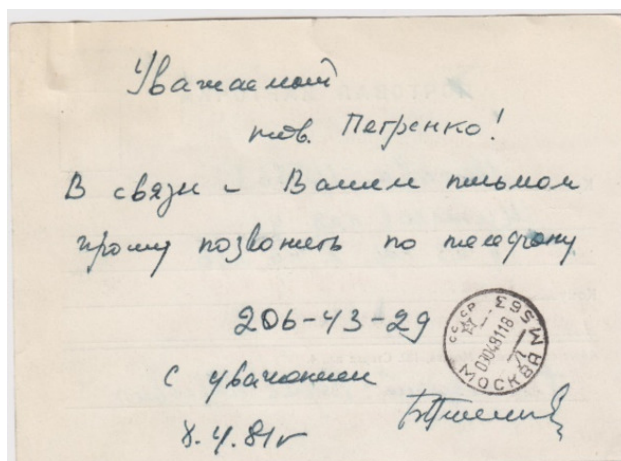 Уважаемый
тов. Петренко!
В связи с Вашим письмом
прошу позвонить по телефону
206-43-29
С уважением
СССР
МОСКВА